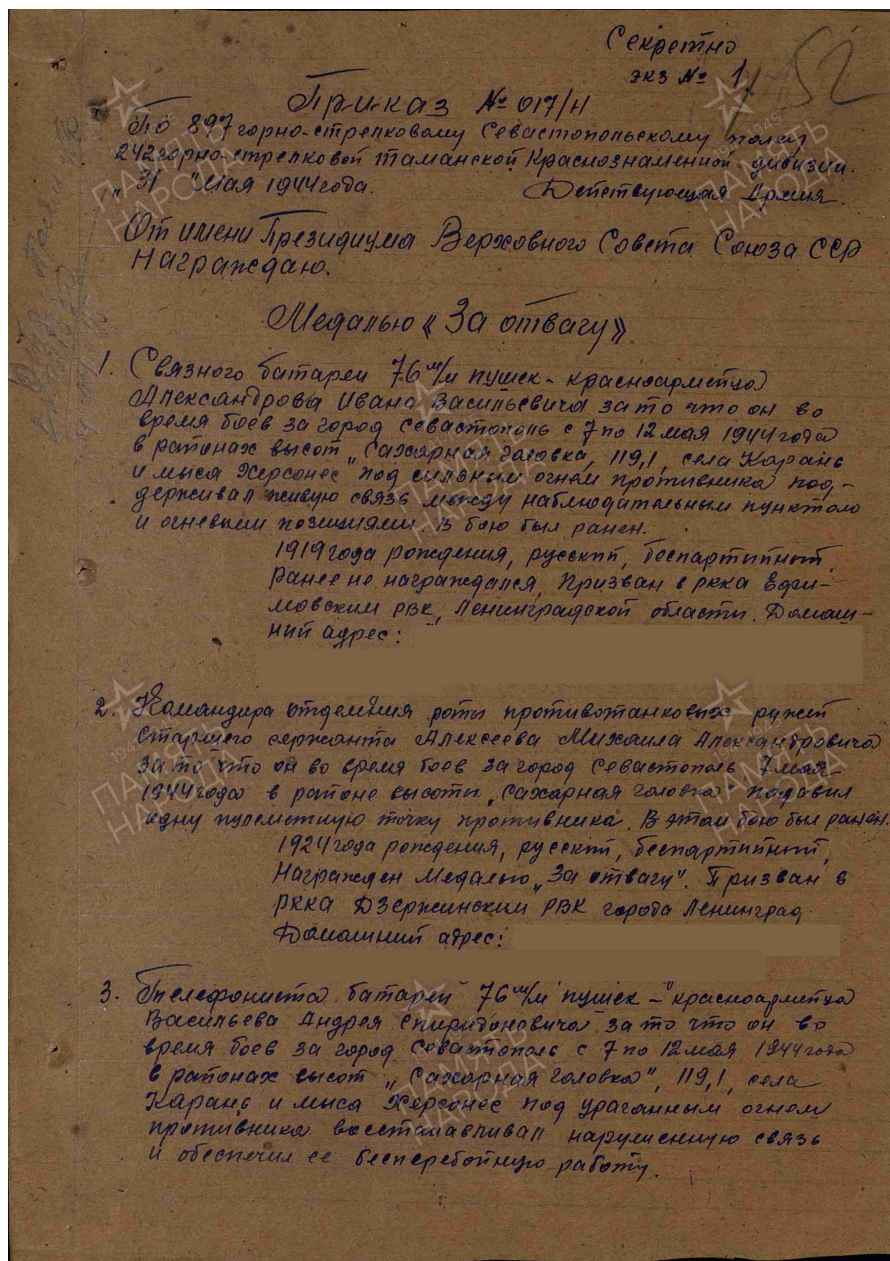 Секретно
экз № 1
52
Приказ № 017/н
По 897 горно-стрелковому Севастопольскому полку
242 горно-стрелковой Таманской Краснознаменной дивизии.
„31" Мая 1944 года. Действующая Армия.
От имени Президиума Верховного Совета Союза ССР
Награждаю.
Медалью «За отвагу»
1. Связного батареи 76 м/м пушек - красноармейца
Александрова Ивана Васильевича за то что он во
время боев за город Севастополь с 7 по 12 мая 1944 года
в районах высот „Сахарная головка, 119,1, села Карань
и мыса Херсонес" под сильным огнем противника под-
держивал живую связь между наблюдательным пунктом
и огневыми позициями. В бою был ранен.
1919 года рождения, русский, беспартийный,
ранее не награждался, Призван в РККА Ефи-
мовским РВК, Ленинградской области. Домаш-
ний адрес:
2. Командира отделения роты противотанковых ружей
старшего сержанта Алексеева Михаила Александровича
за то что он во время боев за город Севастополь 7 мая
1944 года в районе высоты „Сахарная головка" подавил
одну пулеметную точку противника. В этом бою был ранен.
1924 года рождения, русский, беспартийный,
Награжден Медалью „За отвагу". Призван в
РККА Дзержинским РВК города Ленинград
Домашний адрес:
3. Телефониста батареи 76 м/м пушек - красноармейца
Васильева Андрея Спиридоновича за то что он во
время боев за город Севастополь с 7 по 12 мая 1944 года
в районах высот „Сахарная головка", 119,1, села
Карань и мыса Херсонес под ураганным огнем
противника восстанавливал нарушенную связь
и обеспечил ее бесперебойную работу.
ПАМЯТЬ НАРОДА